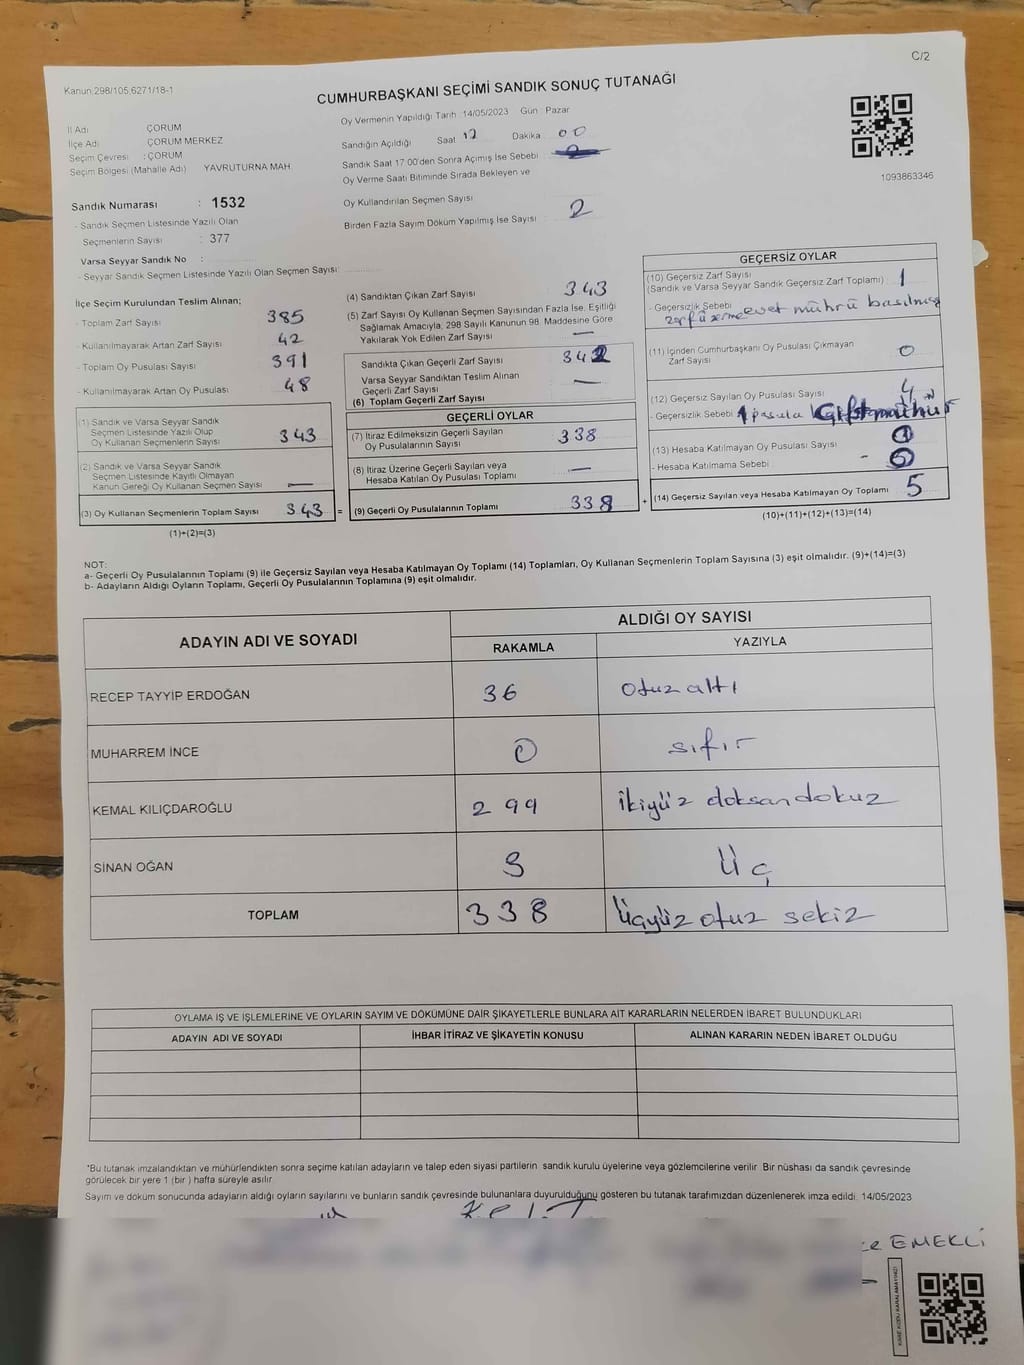 C/2
Kanun:298/105.6271/18-1
CUMHURBAŞKANI SEÇİMİ SANDIK SONUÇ TUTANAĞI
İl Adı ÇORUM
İlçe Adı ÇORUM MERKEZ
Seçim Çevresi : ÇORUM
Seçim Bölgesi (Mahalle Adı) YAVRUTURNA MAH.
Oy Vermenin Yapıldığı Tarih 14/05/2023 Gün : Pazar
Sandığın Açıldığı Saat 17 Dakika 00
Sandık Saat 17:00'den Sonra Açımış İse Sebebi
Oy Verme Saati Bitiminde Sırada Bekleyen ve
Oy Kullandırılan Seçmen Sayısı
Birden Fazla Sayım Döküm Yapılmış İse Sayısı 2
1093863346
Sandık Numarası : 1532
- Sandık Seçmen Listesinde Yazılı Olan
Seçmenlerin Sayısı : 377
Varsa Seyyar Sandık No :
- Seyyar Sandık Seçmen Listesinde Yazılı Olan Seçmen Sayısı:
İlçe Seçim Kurulundan Teslim Alınan;
- Toplam Zarf Sayısı 385
- Kullanılmayarak Artan Zarf Sayısı 42
- Toplam Oy Pusulası Sayısı 391
- Kullanılmayarak Artan Oy Pusulası 48
(1) Sandık ve Varsa Seyyar Sandık
Seçmen Listesinde Yazılı Olup
Oy Kullanan Seçmenlerin Sayısı 343
(2) Sandık ve Varsa Seyyar Sandık
Seçmen Listesinde Kayıtlı Olmayan
Kanun Gereği Oy Kullanan Seçmen Sayısı —
(3) Oy Kullanan Seçmenlerin Toplam Sayısı 343 =
(1)+(2)=(3)
(4) Sandıktan Çıkan Zarf Sayısı 343
(5) Zarf Sayısı Oy Kullanan Seçmen Sayısından Fazla İse, Eşitliği
Sağlamak Amacıyla, 298 Sayılı Kanunun 98. Maddesine Göre
Yakılarak Yok Edilen Zarf Sayısı —
Sandıkta Çıkan Geçerli Zarf Sayısı 342
Varsa Seyyar Sandıktan Teslim Alınan
Geçerli Zarf Sayısı —
(6) Toplam Geçerli Zarf Sayısı
GEÇERLİ OYLAR
(7) İtiraz Edilmeksizin Geçerli Sayılan
Oy Pusulalarının Sayısı 338
(8) İtiraz Üzerine Geçerli Sayılan veya
Hesaba Katılan Oy Pusulası Toplamı —
(9) Geçerli Oy Pusulalarının Toplamı 338 +
GEÇERSİZ OYLAR
(10) Geçersiz Zarf Sayısı
(Sandık ve Varsa Seyyar Sandık Geçersiz Zarf Toplamı) 1
- Geçersizlik Sebebi
zarf üzerine evet mührü basılmış
(11) İçinden Cumhurbaşkanı Oy Pusulası Çıkmayan
Zarf Sayısı 0
(12) Geçersiz Sayılan Oy Pusulası Sayısı 4
- Geçersizlik Sebebi 1 pusula Çift mühür
(13) Hesaba Katılmayan Oy Pusulası Sayısı
- Hesaba Katılmama Sebebi
(14) Geçersiz Sayılan veya Hesaba Katılmayan Oy Toplamı 5
(10)+(11)+(12)+(13)=(14)
NOT:
a- Geçerli Oy Pusulalarının Toplamı (9) ile Geçersiz Sayılan veya Hesaba Katılmayan Oy Toplamı (14) Toplamları, Oy Kullanan Seçmenlerin Toplam Sayısına (3) eşit olmalıdır. (9)+(14)=(3)
b- Adayların Aldığı Oyların Toplamı, Geçerli Oy Pusulalarının Toplamına (9) eşit olmalıdır.
ADAYIN ADI VE SOYADI
ALDIĞI OY SAYISI
RAKAMLA YAZIYLA
RECEP TAYYİP ERDOĞAN 36 otuz altı
MUHARREM İNCE 0 sıfır
KEMAL KILIÇDAROĞLU 299 ikiyüz doksan dokuz
SİNAN OĞAN 3 üç
TOPLAM 338 üçyüz otuz sekiz
OYLAMA İŞ VE İŞLEMLERİNE VE OYLARIN SAYIM VE DÖKÜMÜNE DAİR ŞİKAYETLERLE BUNLARA AİT KARARLARIN NELERDEN İBARET BULUNDUKLARI
ADAYIN ADI VE SOYADI İHBAR İTİRAZ VE ŞİKAYETİN KONUSU ALINAN KARARIN NEDEN İBARET OLDUĞU
*Bu tutanak imzalandıktan ve mühürlendikten sonra seçime katılan adayların ve talep eden siyasi partilerin sandık kurulu üyelerine veya gözlemcilerine verilir. Bir nüshası da sandık çevresinde
görülecek bir yere 1 (bir ) hafta süreyle asılır.
Sayım ve döküm sonucunda adayların aldığı oyların sayılarını ve bunların sandık çevresinde bulunanlara duyurulduğunu gösteren bu tutanak tarafımızdan düzenlenerek imza edildi. 14/05/2023
EMEKLİ